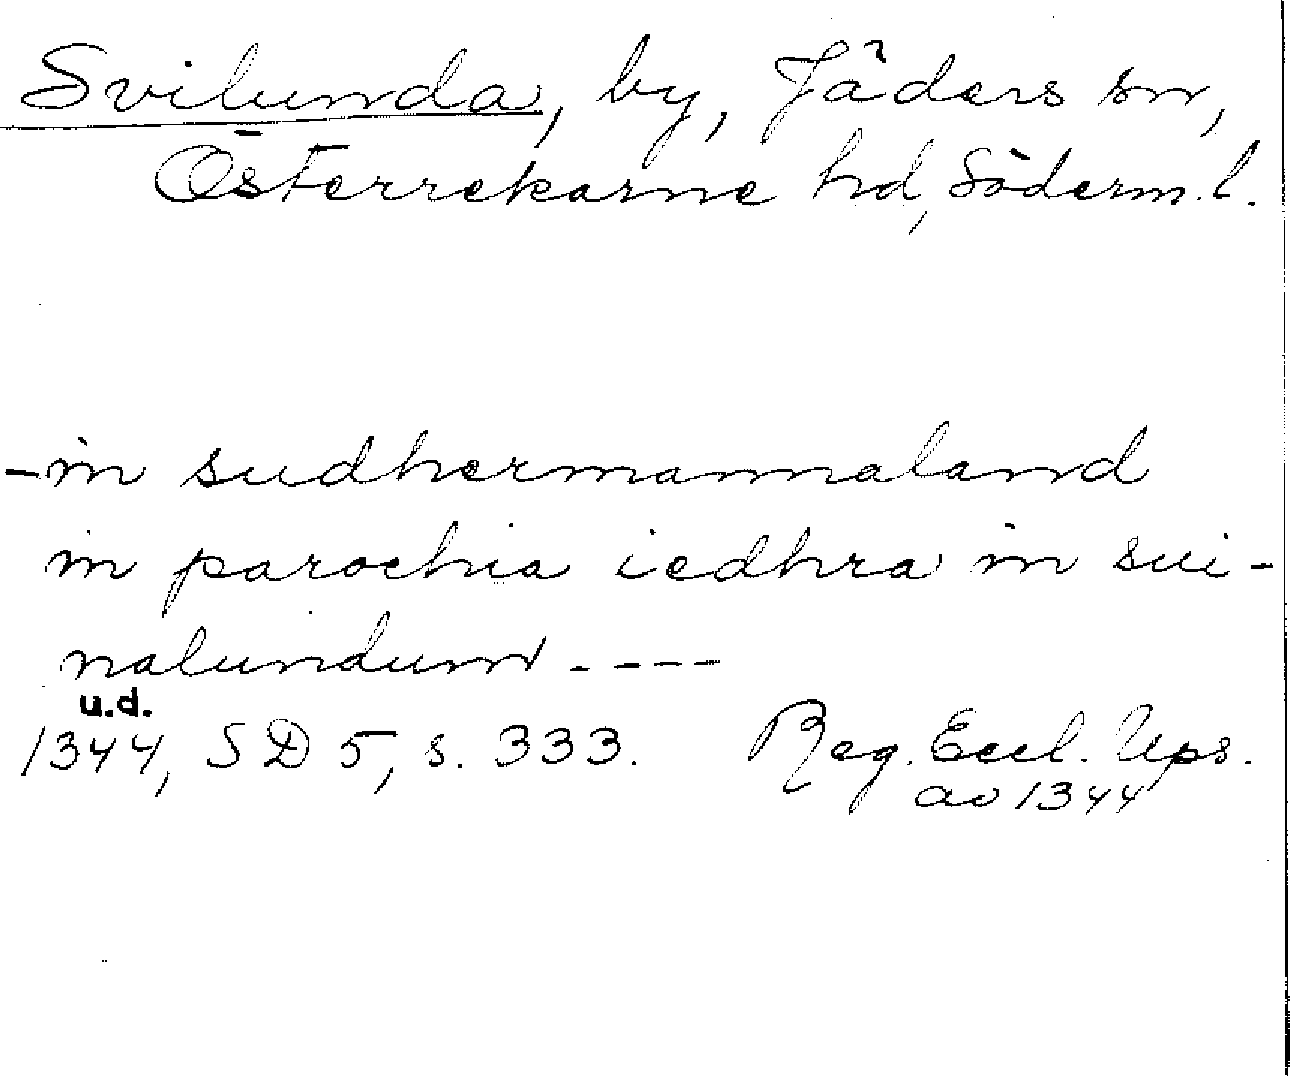 Svilunda, by, Jäders sn,
Österrekarne hd, Söderm. l.
- in sudhermannaland
in parochia iedhra in sui-
nalundum - - - -
u.d.
1344, SD 5, s. 333. Reg. Eccl. Ups.
av 1344